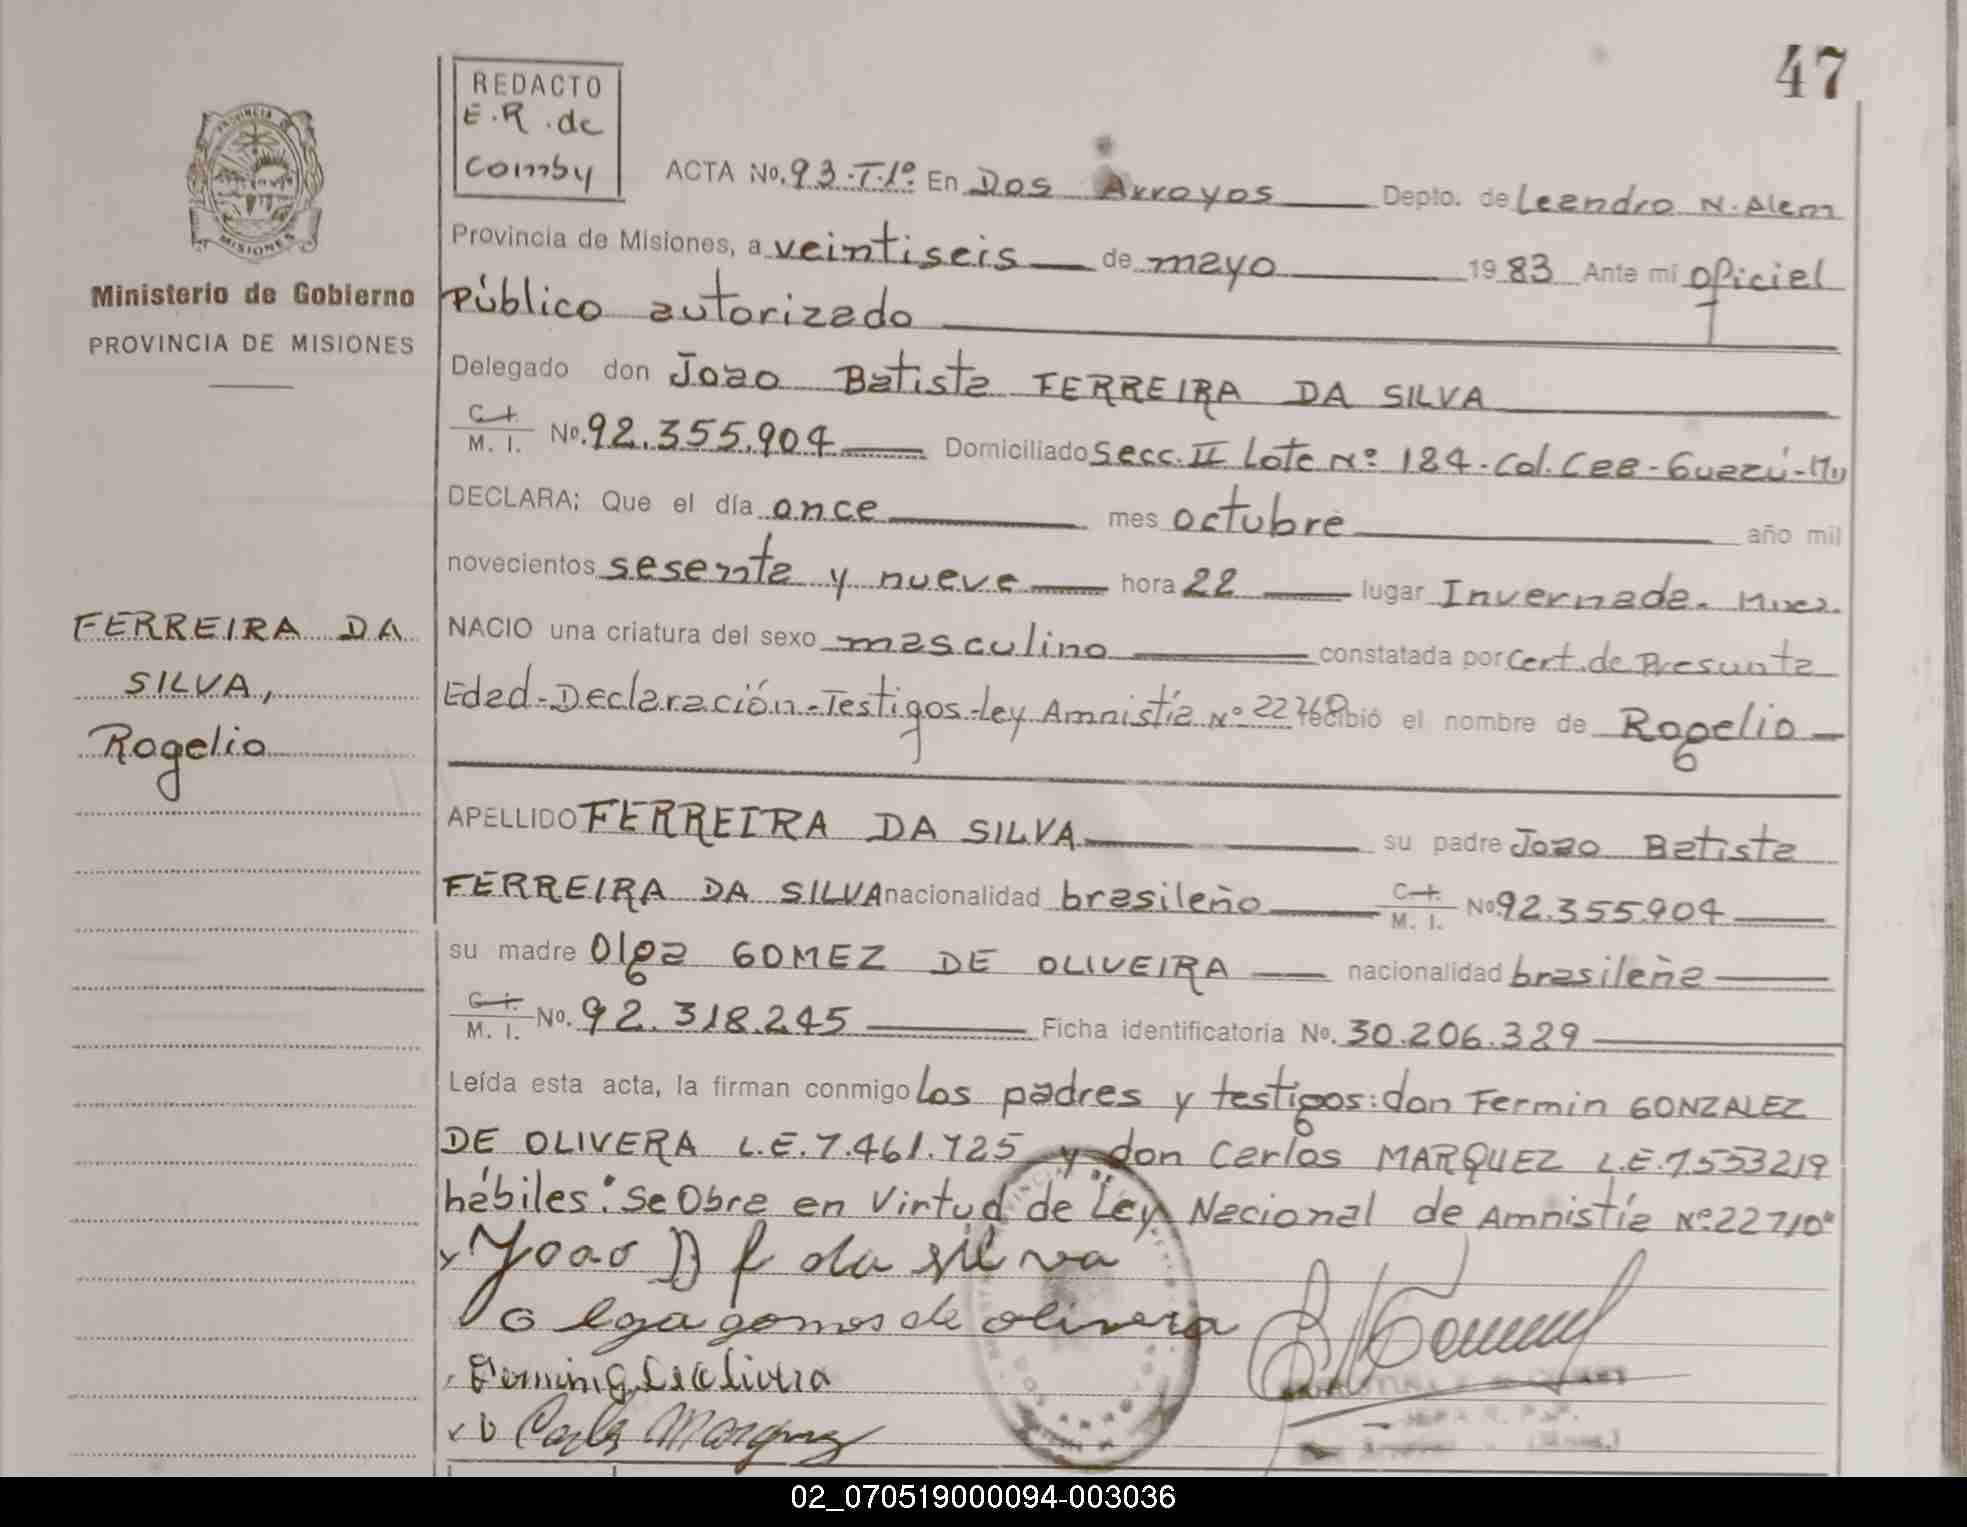 47
REDACTO
E.R. de
Comby
ACTA No. 93.T.1º. En Dos Arroyos Depto. de Leandro N. Alem
Provincia de Misiones, a veintiseis de mayo 1983 Ante mí oficial
Público autorizado
Delegado don Joao Batista FERREIRA DA SILVA
C. I.
M. I. No. 92.355.904 Domiciliado Secc. II Lote Nº 184-Col. Caa-Guazú-
DECLARA; Que el día once mes octubre año mil
novecientos sesenta y nueve hora 22 lugar Invernada.
NACIO una criatura del sexo masculino constatada por Cert. de Presunta
Edad-Declaración-Testigos-Ley Amnistía Nº recibió el nombre de Rogelio
APELLIDO FERREIRA DA SILVA su padre Joao Batista
FERREIRA DA SILVA nacionalidad brasileño C. I. M. I. No. 92.355.904
su madre Olga GOMEZ DE OLIVEIRA nacionalidad brasileña
C. I.
M. I. No. 92.318.245 Ficha identificatoria No. 30.206.329
Leída esta acta, la firman conmigo los padres y testigos: don Fermin GONZALEZ
DE OLIVERA L.E. 7.461.725 y don Carlos MARQUEZ L.E. 7553219
hábiles: Se Obra en Virtud de Ley Nacional de Amnistía Nº
Joao B f da silva
olga gomes de olivera
Carlos Marquez
PROVINCIA
MISIONES
Ministerio de Gobierno
PROVINCIA DE MISIONES
FERREIRA DA
SILVA,
Rogelio
02_070519000094-003036